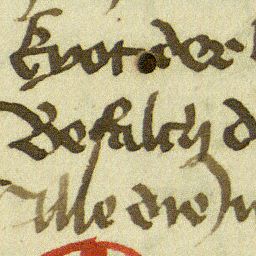 Kyot der
Befalch d
Alle die